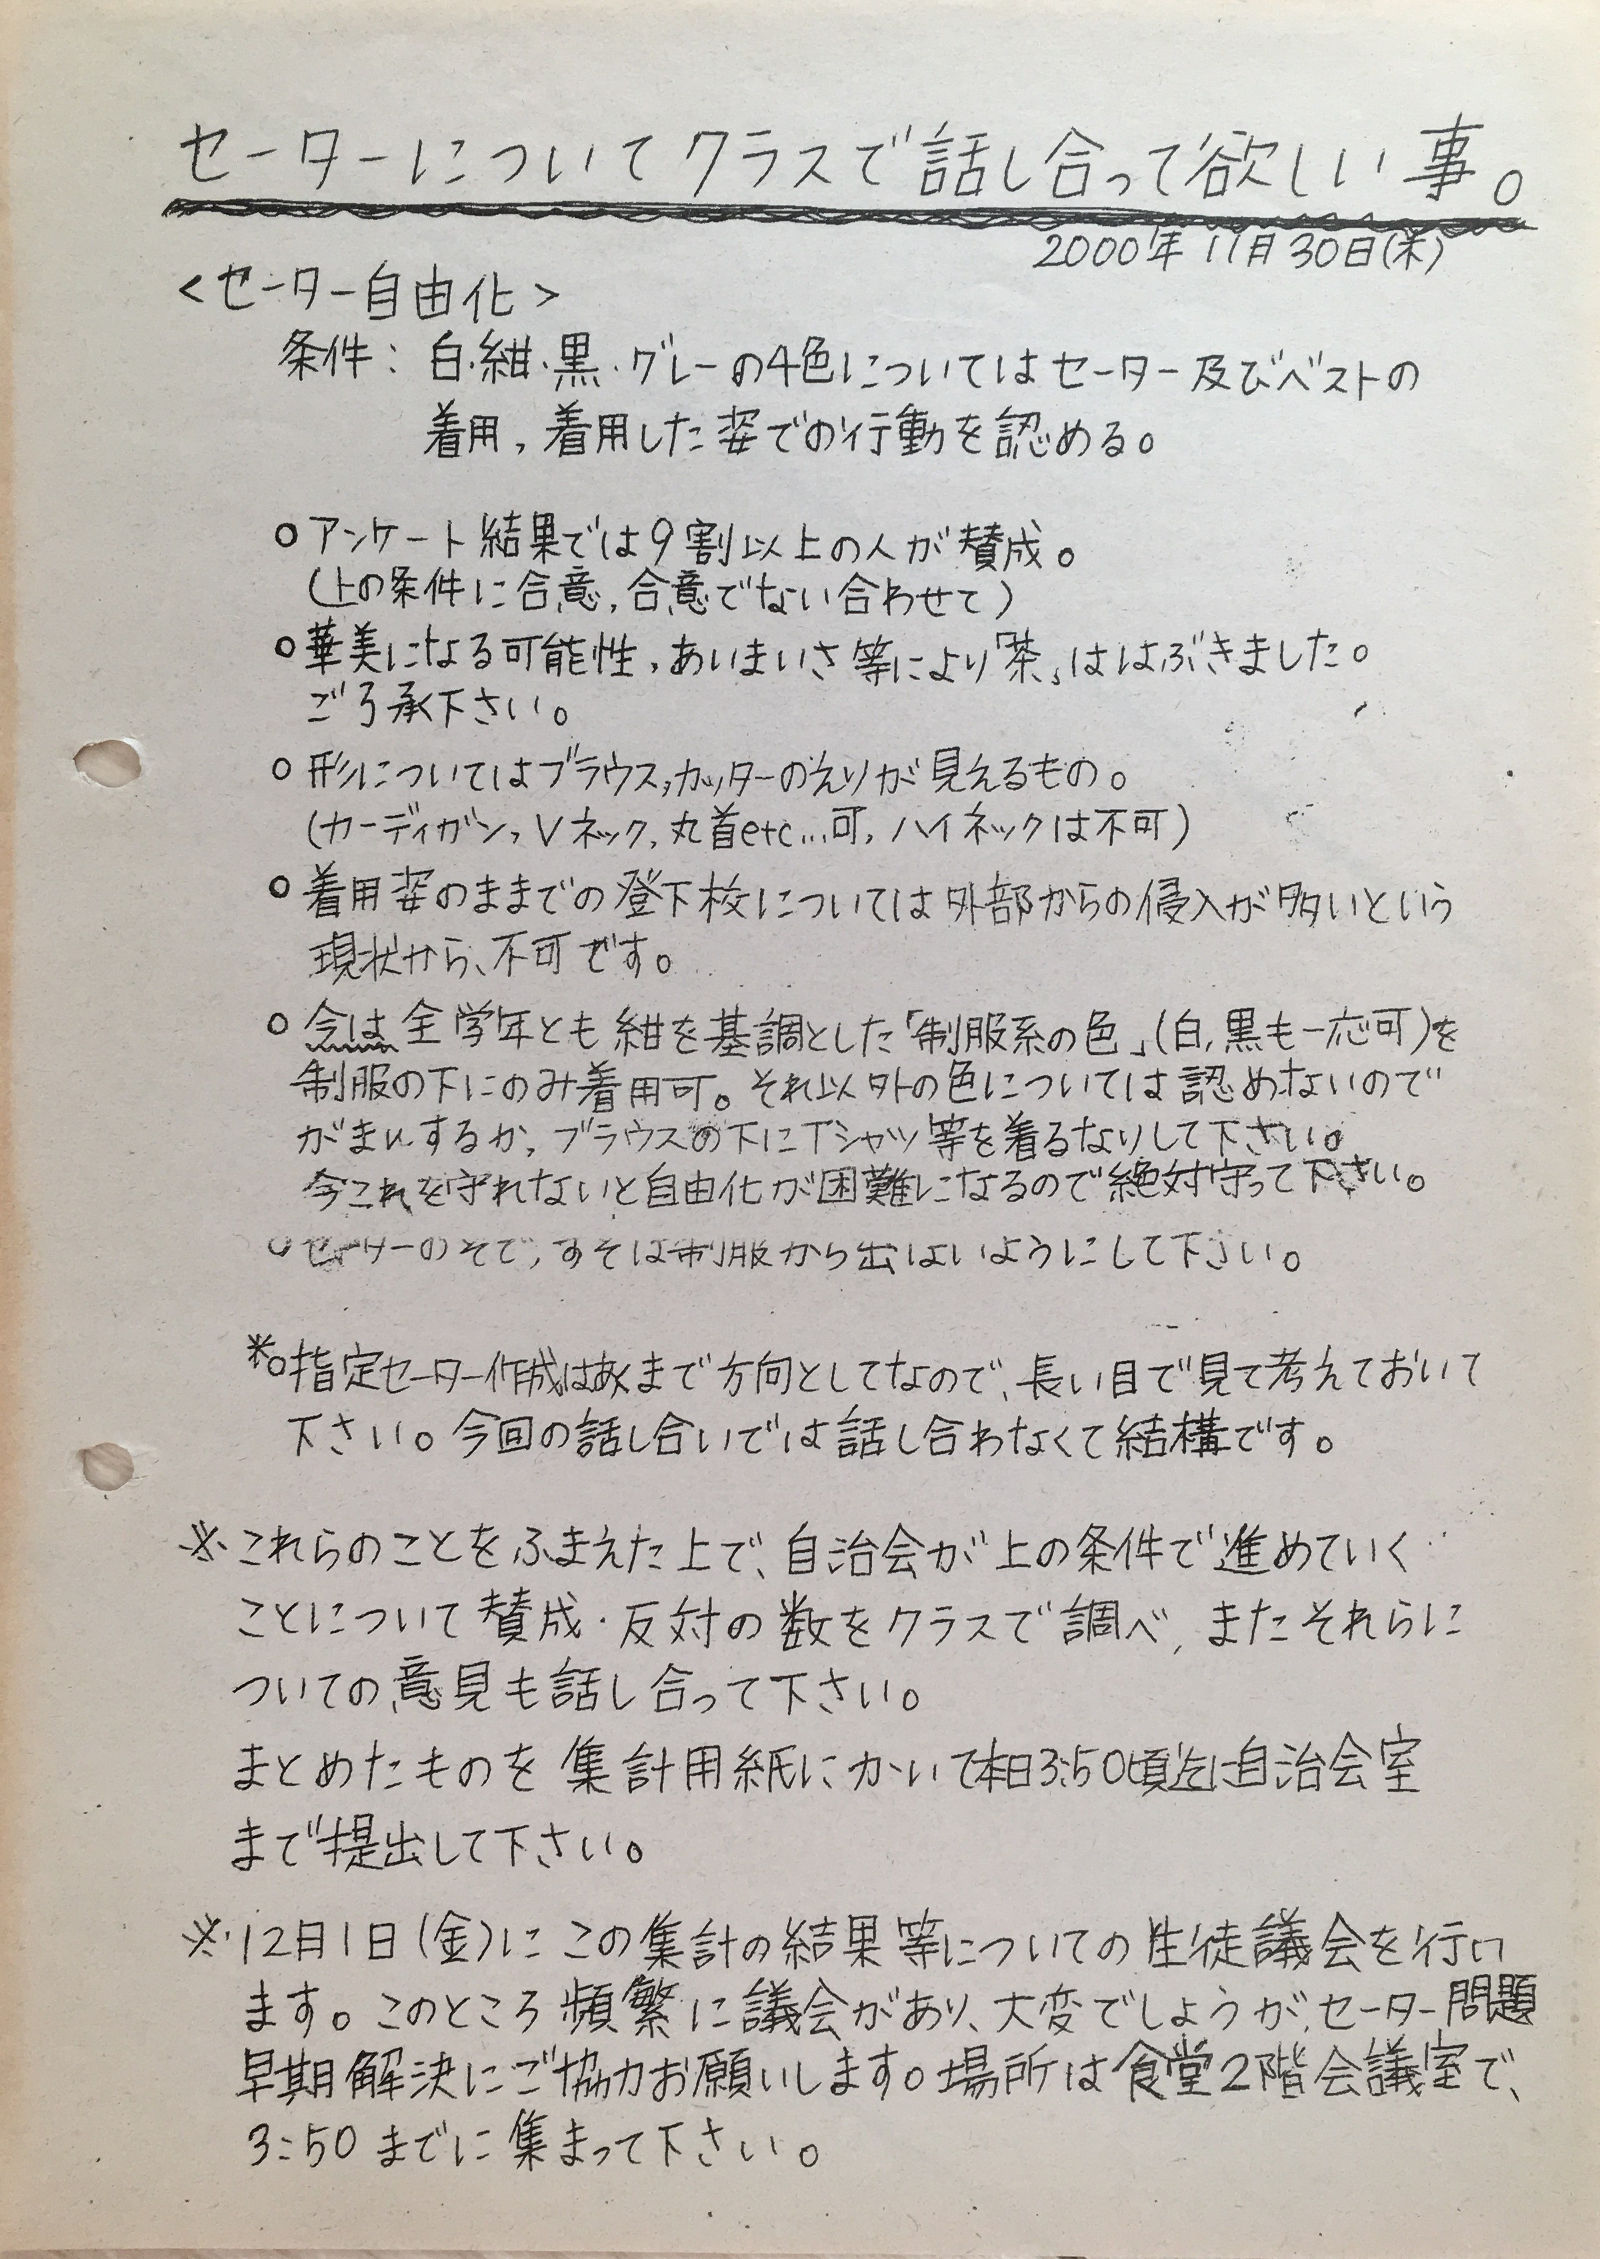 セーターについてクラスで話し合って欲しい事。
2000年11月30日(木)
<セーター自由化>
条件: 白・紺・黒・グレーの4色についてはセーター及びベストの
着用,着用した姿での行動を認める。
○アンケート結果では9割以上の人が賛成。
(上の条件に合意,合意でない合わせて)
○華美になる可能性,あいまいさ等により「茶」ははぶきました。
ご了承下さい。
○形についてはブラウス,カッターのえりが見えるもの。
(カーディガン,Vネック,丸首etc...可,ハイネックは不可)
○着用姿のままでの登下校については外部からの侵入が多いという
現状から、不可です。
○今は全学年とも紺を基調とした「制服系の色」(白,黒も一応可)を
制服の下にのみ着用可。それ以外の色については認めないので
がまんするか,ブラウスの下にTシャツ等を着るなりして下さい。
今これを守れないと自由化が困難になるので絶対守って下さい。
○セーターのそで,すそは制服から出ないようにして下さい。
*○指定セーター作成はあくまで方向としてなので、長い目で見て考えておいて
下さい。今回の話し合いでは話し合わなくて結構です。
※これらのことをふまえた上で、自治会が上の条件で進めていく
ことについて賛成・反対の数をクラスで調べ,またそれらに
ついての意見も話し合って下さい。
まとめたものを集計用紙にかいて本日3:50頃迄に自治会室
まで提出して下さい。
※12月1日(金)にこの集計の結果等についての生徒議会を行い
ます。このところ頻繁に議会があり、大変でしょうが,セーター問題
早期解決にご協力お願いします。場所は食堂2階会議室で、
3:50までに集まって下さい。